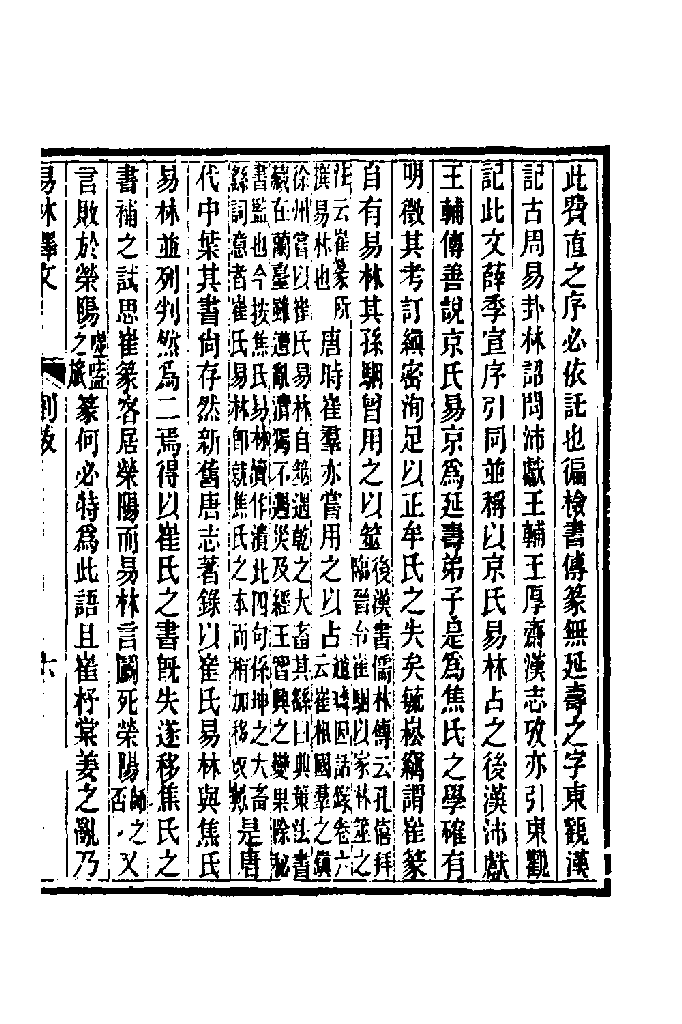 此費直之序必依託也徧檢書傳篆無延壽之字東觀漢
記古周易卦林詔問沛獻王輔王厚齋漢志攷亦引東觀
記此文薛季宣序引同並稱以京氏易林占之後漢沛獻
王輔傳善說京氏易京爲延壽弟子是爲焦氏之學確有
明徵其考訂縝密洵足以正牟氏之失矣毓崧竊謂崔篆
自有易林其孫駰曾用之以筮後漢書儒林傳云孔僖拜臨晉令崔駰以家林筮之
注云崔篆所撰易林也唐時崔羣亦嘗用之以占趙璘因話錄卷六云崔相國羣之鎮
徐州嘗以崔氏易林自筮遇乾之大畜其繇曰典策法書藏在蘭臺雖遭亂潰獨不遇災及經王智興之變果除秘
書監也今按焦氏易林潰作潰此四句係坤之大畜繇詞意者崔氏易林卽就焦氏之本而稍加移改歟是唐
代中葉其書尙存然新舊唐志著錄以崔氏易林與焦氏
易林並列判然爲二焉得以崔氏之書旣失遂移焦氏之
書補之試思崔篆客居滎陽而易林言鬭死滎陽師之否又
言敗於滎陽噬嗑之旅篆何必特爲此語且崔杼棠姜之亂乃
易林釋文
六